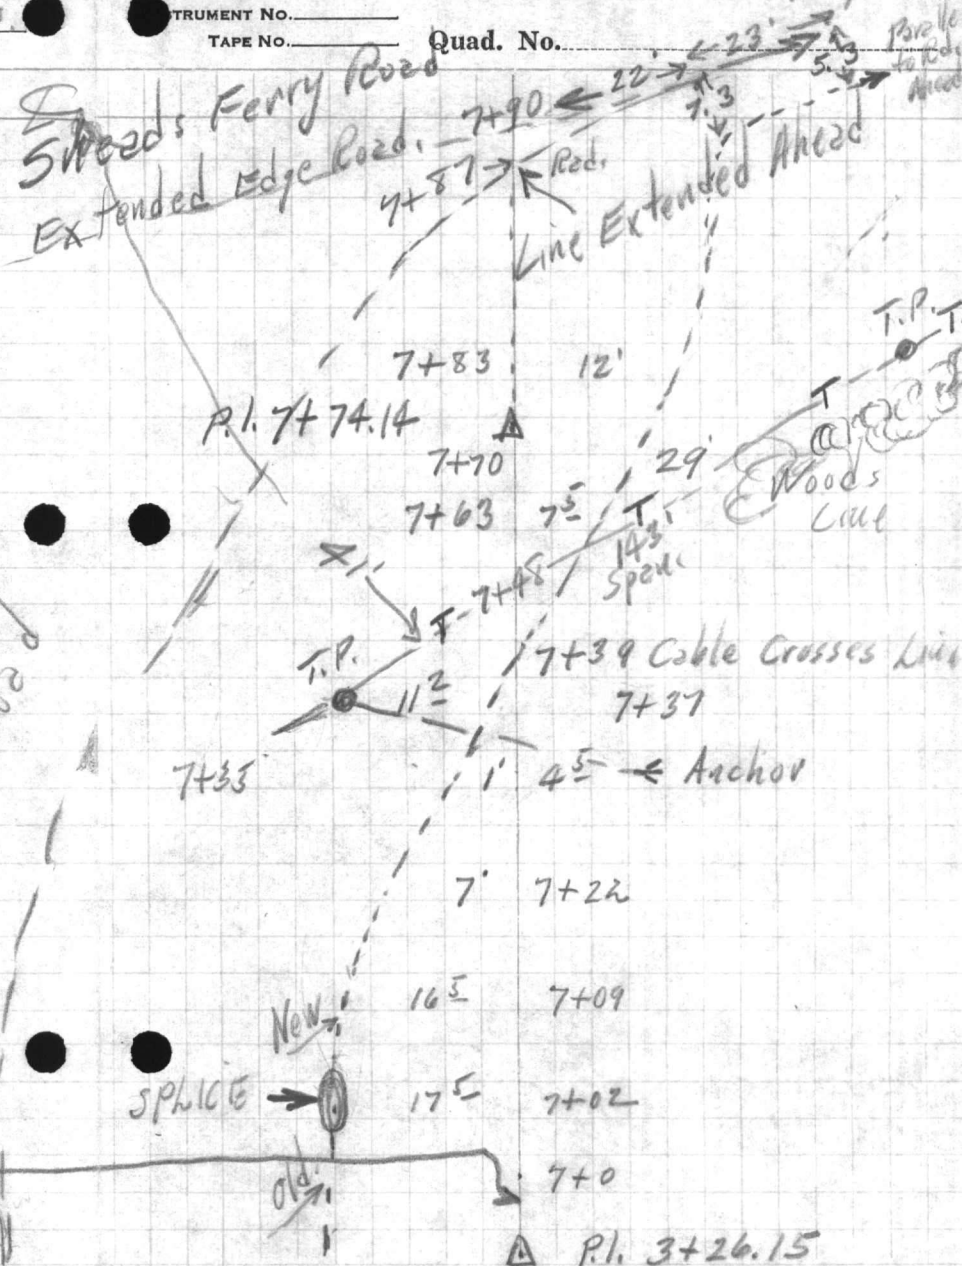 STRUMENT No.
TAPE No.
Quad. No.
Sneads Ferry Road
Extended Edge Road.
7+90
22'
23'
7.3
5.3
Ahead
7+87
Rad.
Line Extended Ahead
7+83 12'
T.P.
T
T
P.I. 7+74.14
7+70
29'
Woods
Line
7+63 7 5
T
143'
Span
7+48
T
T.P.
7+39 Cable Crosses Line
11 2
7+37
7+33
1' 4 5 Anchor
7' 7+22
16 5 7+09
New
SPLICE
17 5 7+02
Old
7+0
P.I. 3+26.15